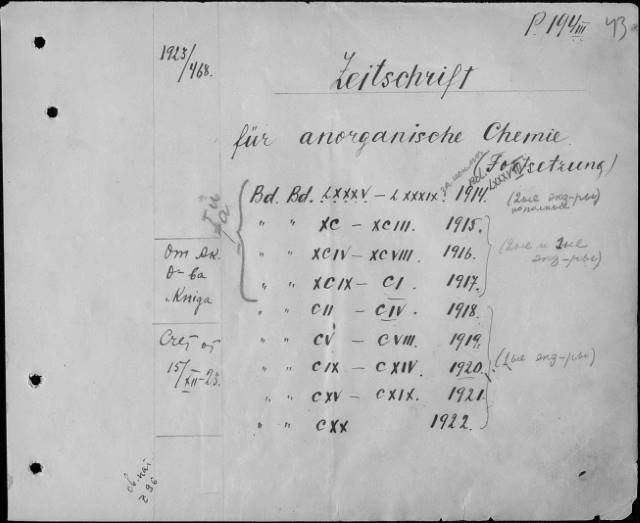 P. 194 III 43
1923/468.
Zeitschrift
für anorganische Chemie
(Fortsetzung)
Bd. Bd. LXXXV – LXXXIX. 1914. (2ые экз-ры)
неполные
" " XC – XCIII. 1915.
" " XCIV – XCVIII. 1916. (2ые и 1ые
экз-ры)
" " XCIX – CI. 1917.
" " CII – CIV. 1918.
" " CV – CVIII. 1919.
" " CIX – CXIV. 1920. (1ые экз-ры)
" " CXV – CXIX. 1921.
" " CXX 1922.
От Ак.
О-ва
„Книга
Счет от
15/XII–23.